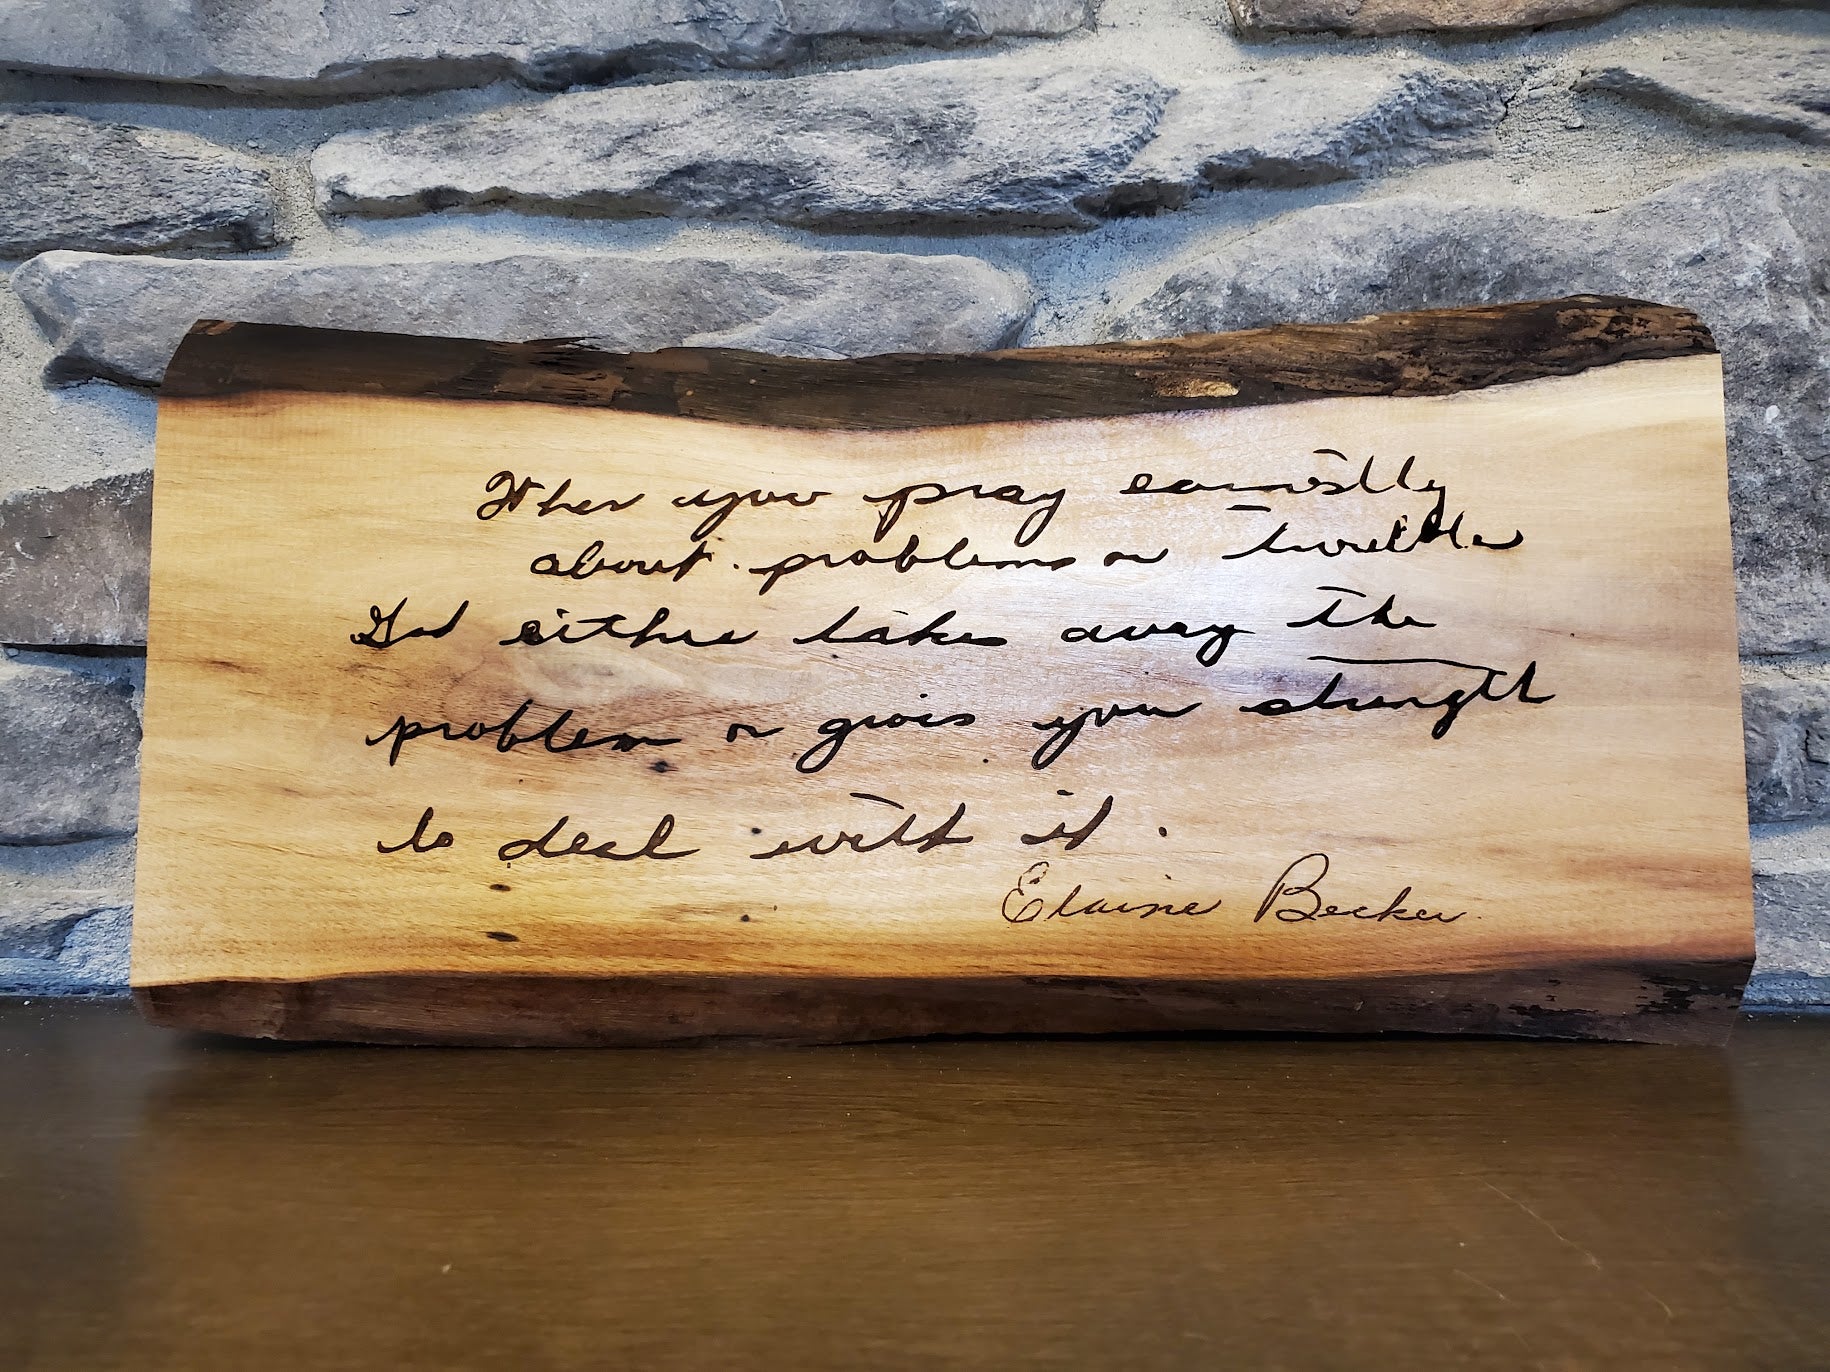 When you pray earnestly
about problems or trouble
God either takes away the
problem or gives you strength
to deal with it.
Elaine Becker